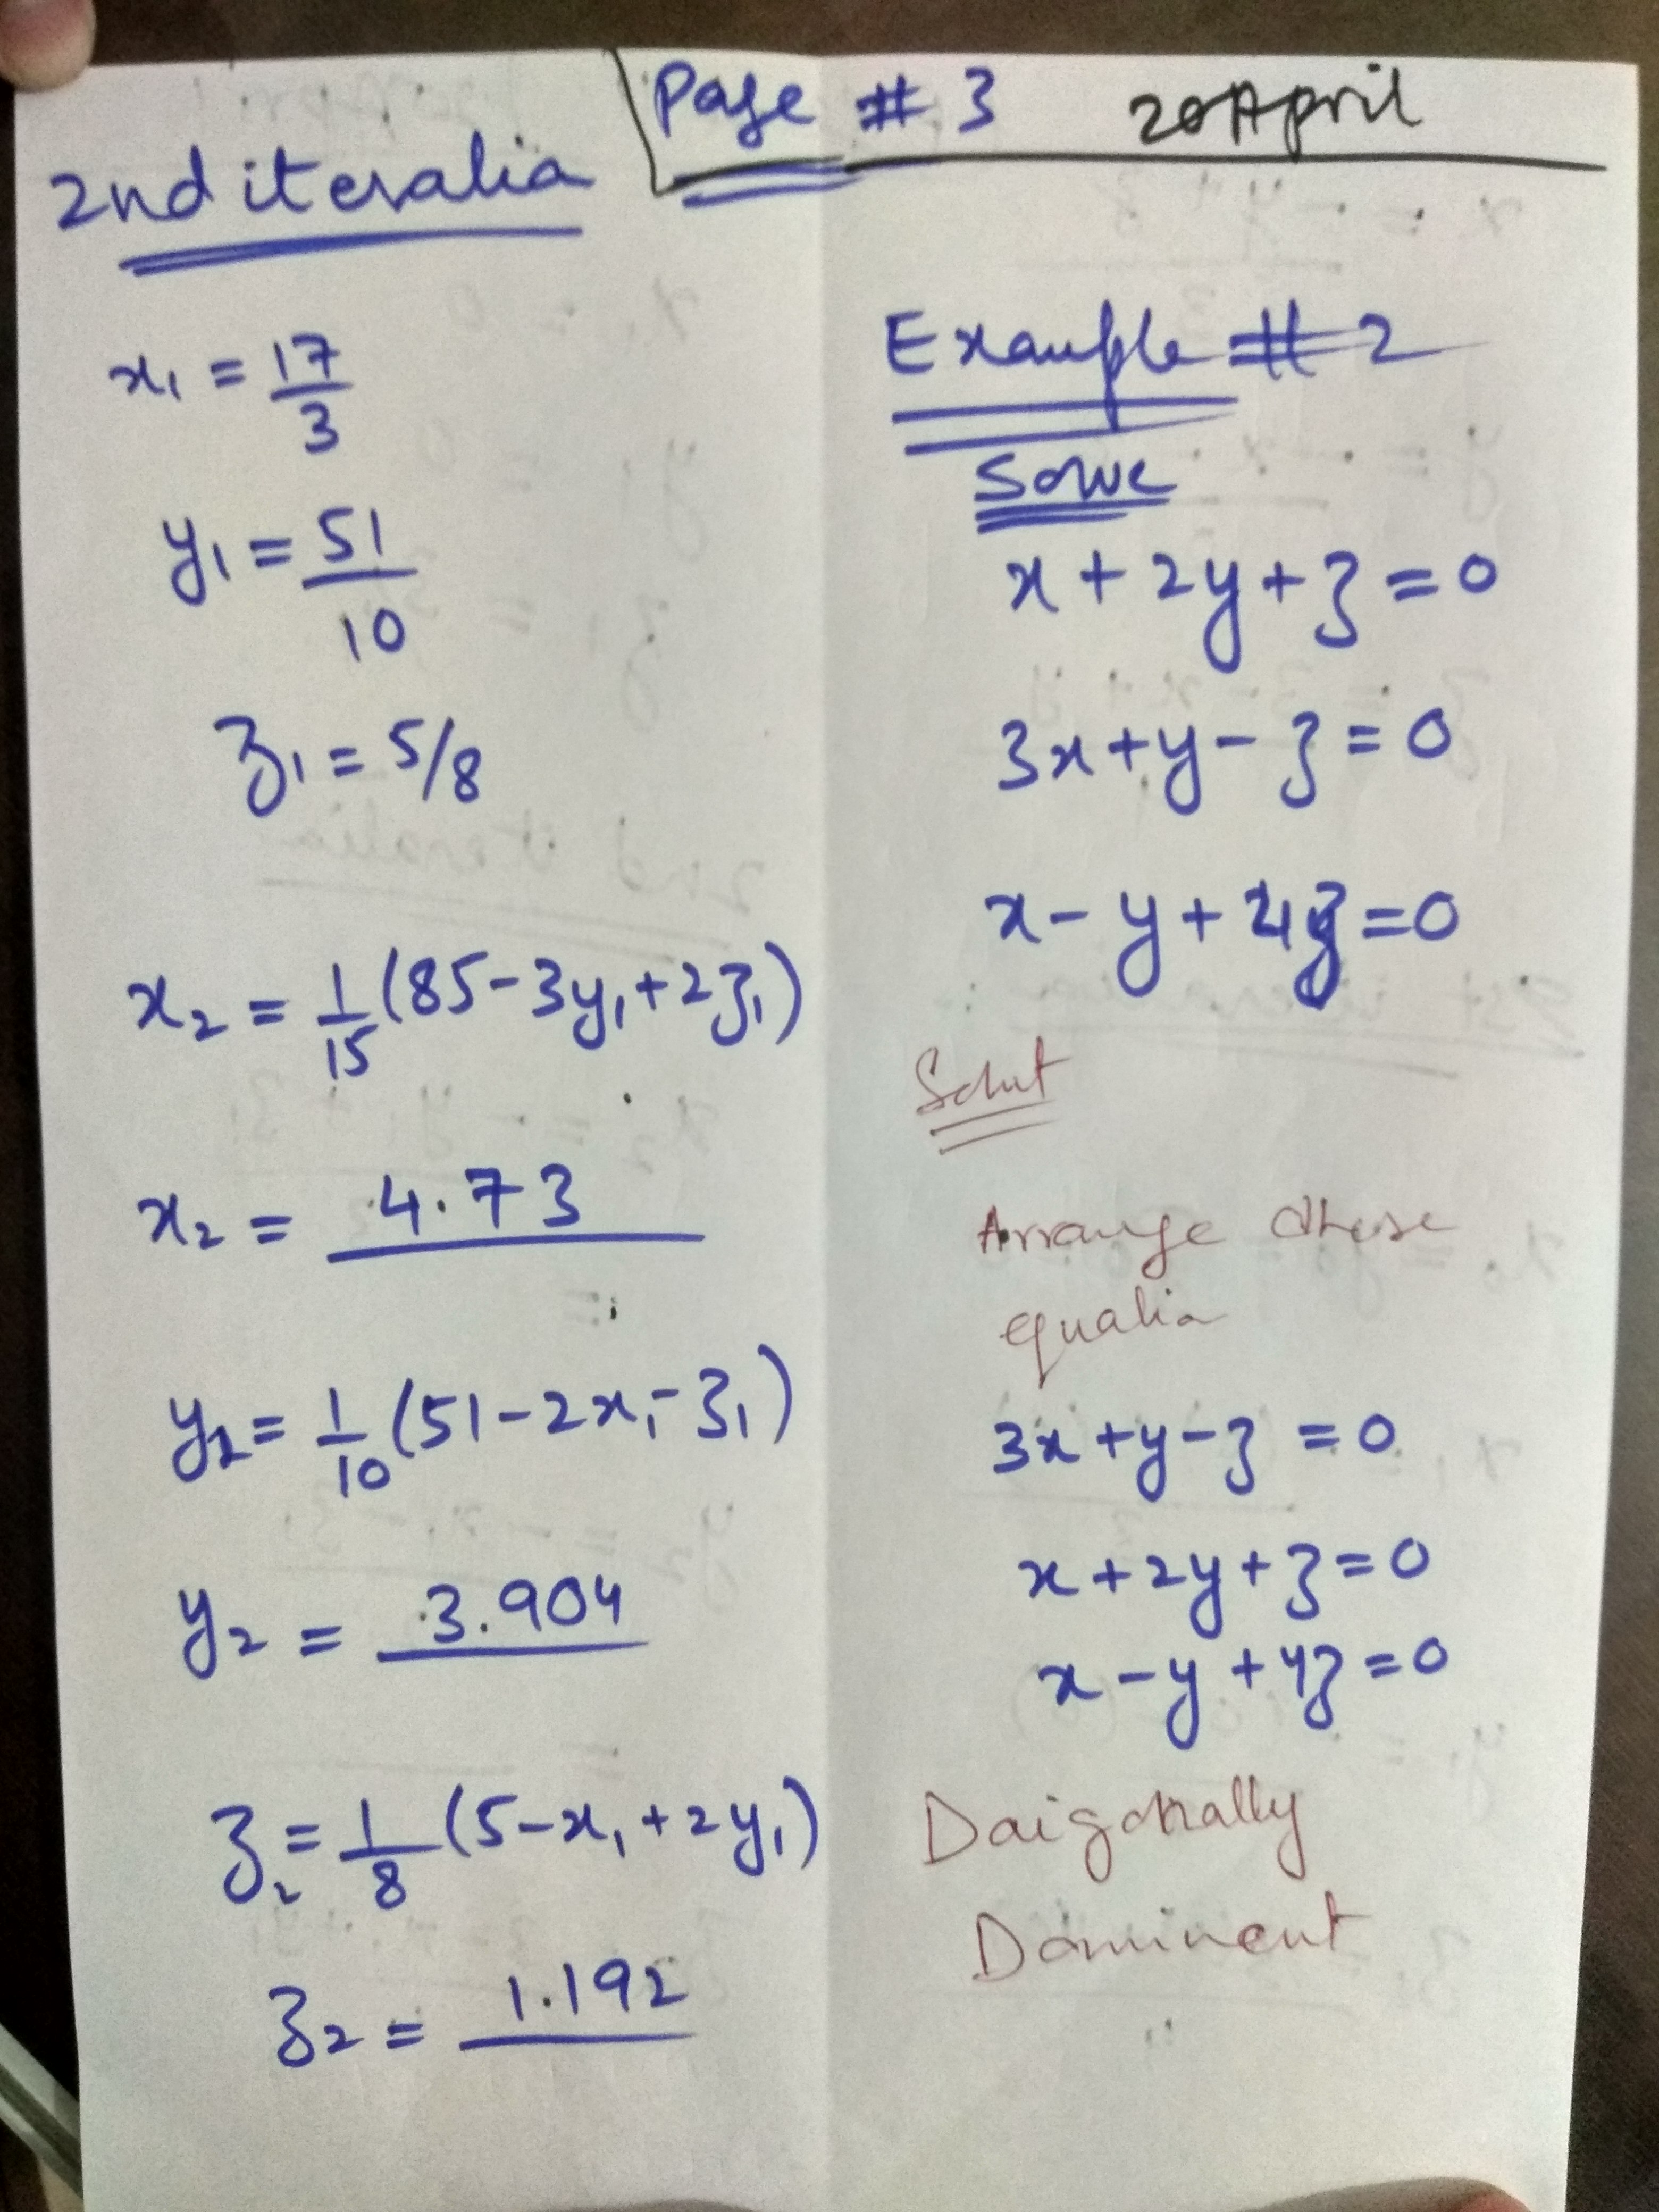 Page # 3 20 April
2nd iteratia
x₁ = 17/3
y₁ = 51/10
z₁ = 5/8
x₂ = 1/15 (85 - 3y₁ + 2z₁)
x₂ = 4.73
y₂ = 1/10 (51 - 2x₁ - z₁)
y₂ = 3.904
z₂ = 1/8 (5 - x₁ + 2y₁)
z₂ = 1.192
Example # 2
Solve
x + 2y + z = 0
3x + y - z = 0
x - y + 4z = 0
Solut
Arrange these
equatia
3x + y - z = 0
x + 2y + z = 0
x - y + 4z = 0
Daigonally
Dominent